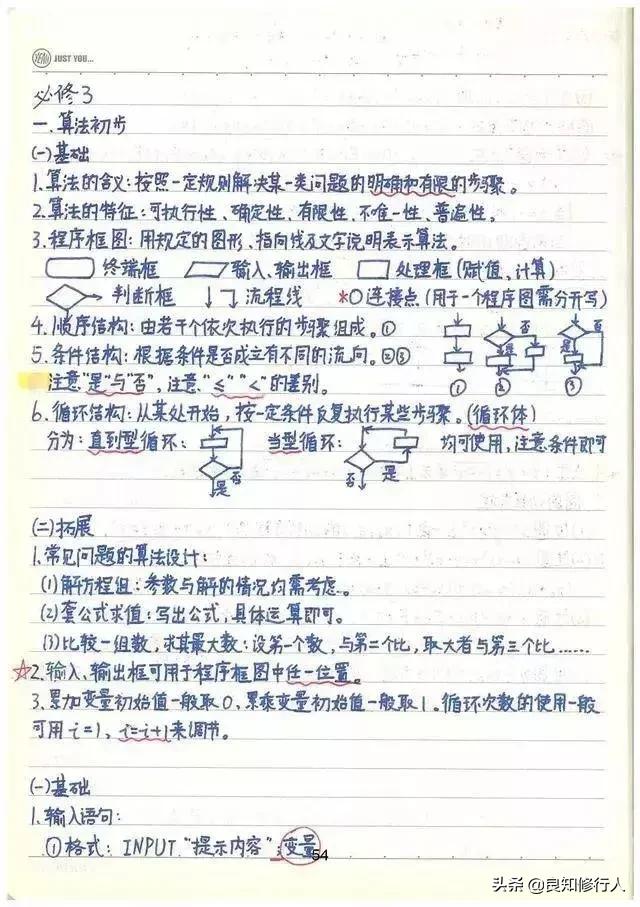 YEAH JUST YOU...
必修3
一.算法初步
(一)基础
1.算法的含义:按照一定规则解决某一类问题的明确和有限的步骤。
2.算法的特征:可执行性、确定性、有限性、不唯一性、普遍性。
3.程序框图:用规定的图形、指向线及文字说明表示算法。
终端框 输入、输出框 处理框(赋值、计算)
判断框 流程线 *○连接点(用于一个程序图需分开写)
4.顺序结构:由若干个依次执行的步骤组成。①
5.条件结构:根据条件是否成立有不同的流向。②③
是 否 是 否
① ② ③
注意"是"与"否",注意"≤""<"的差别。
6.循环结构:从某处开始,按一定条件反复执行某些步骤。(循环体)
分为:直到型循环: 当型循环: 均可使用,注意条件即可
否 是 否 是
(二)拓展
1.常见问题的算法设计:
(1)解方程组:参数与解的情况均需考虑。
(2)套公式求值:写出公式,具体运算即可。
(3)比较一组数,求其最大数:设第一个数,与第二个比,取大者与第三个比……
☆2.输入、输出框可用于程序框图中任一位置。
3.累加变量初始值一般取0,累乘变量初始值一般取1。循环次数的使用一般
可用i=1,i=i+1来调节。
(一)基础
1.输入语句:
①格式:INPUT "提示内容";变量
54
头条 @良知修行人